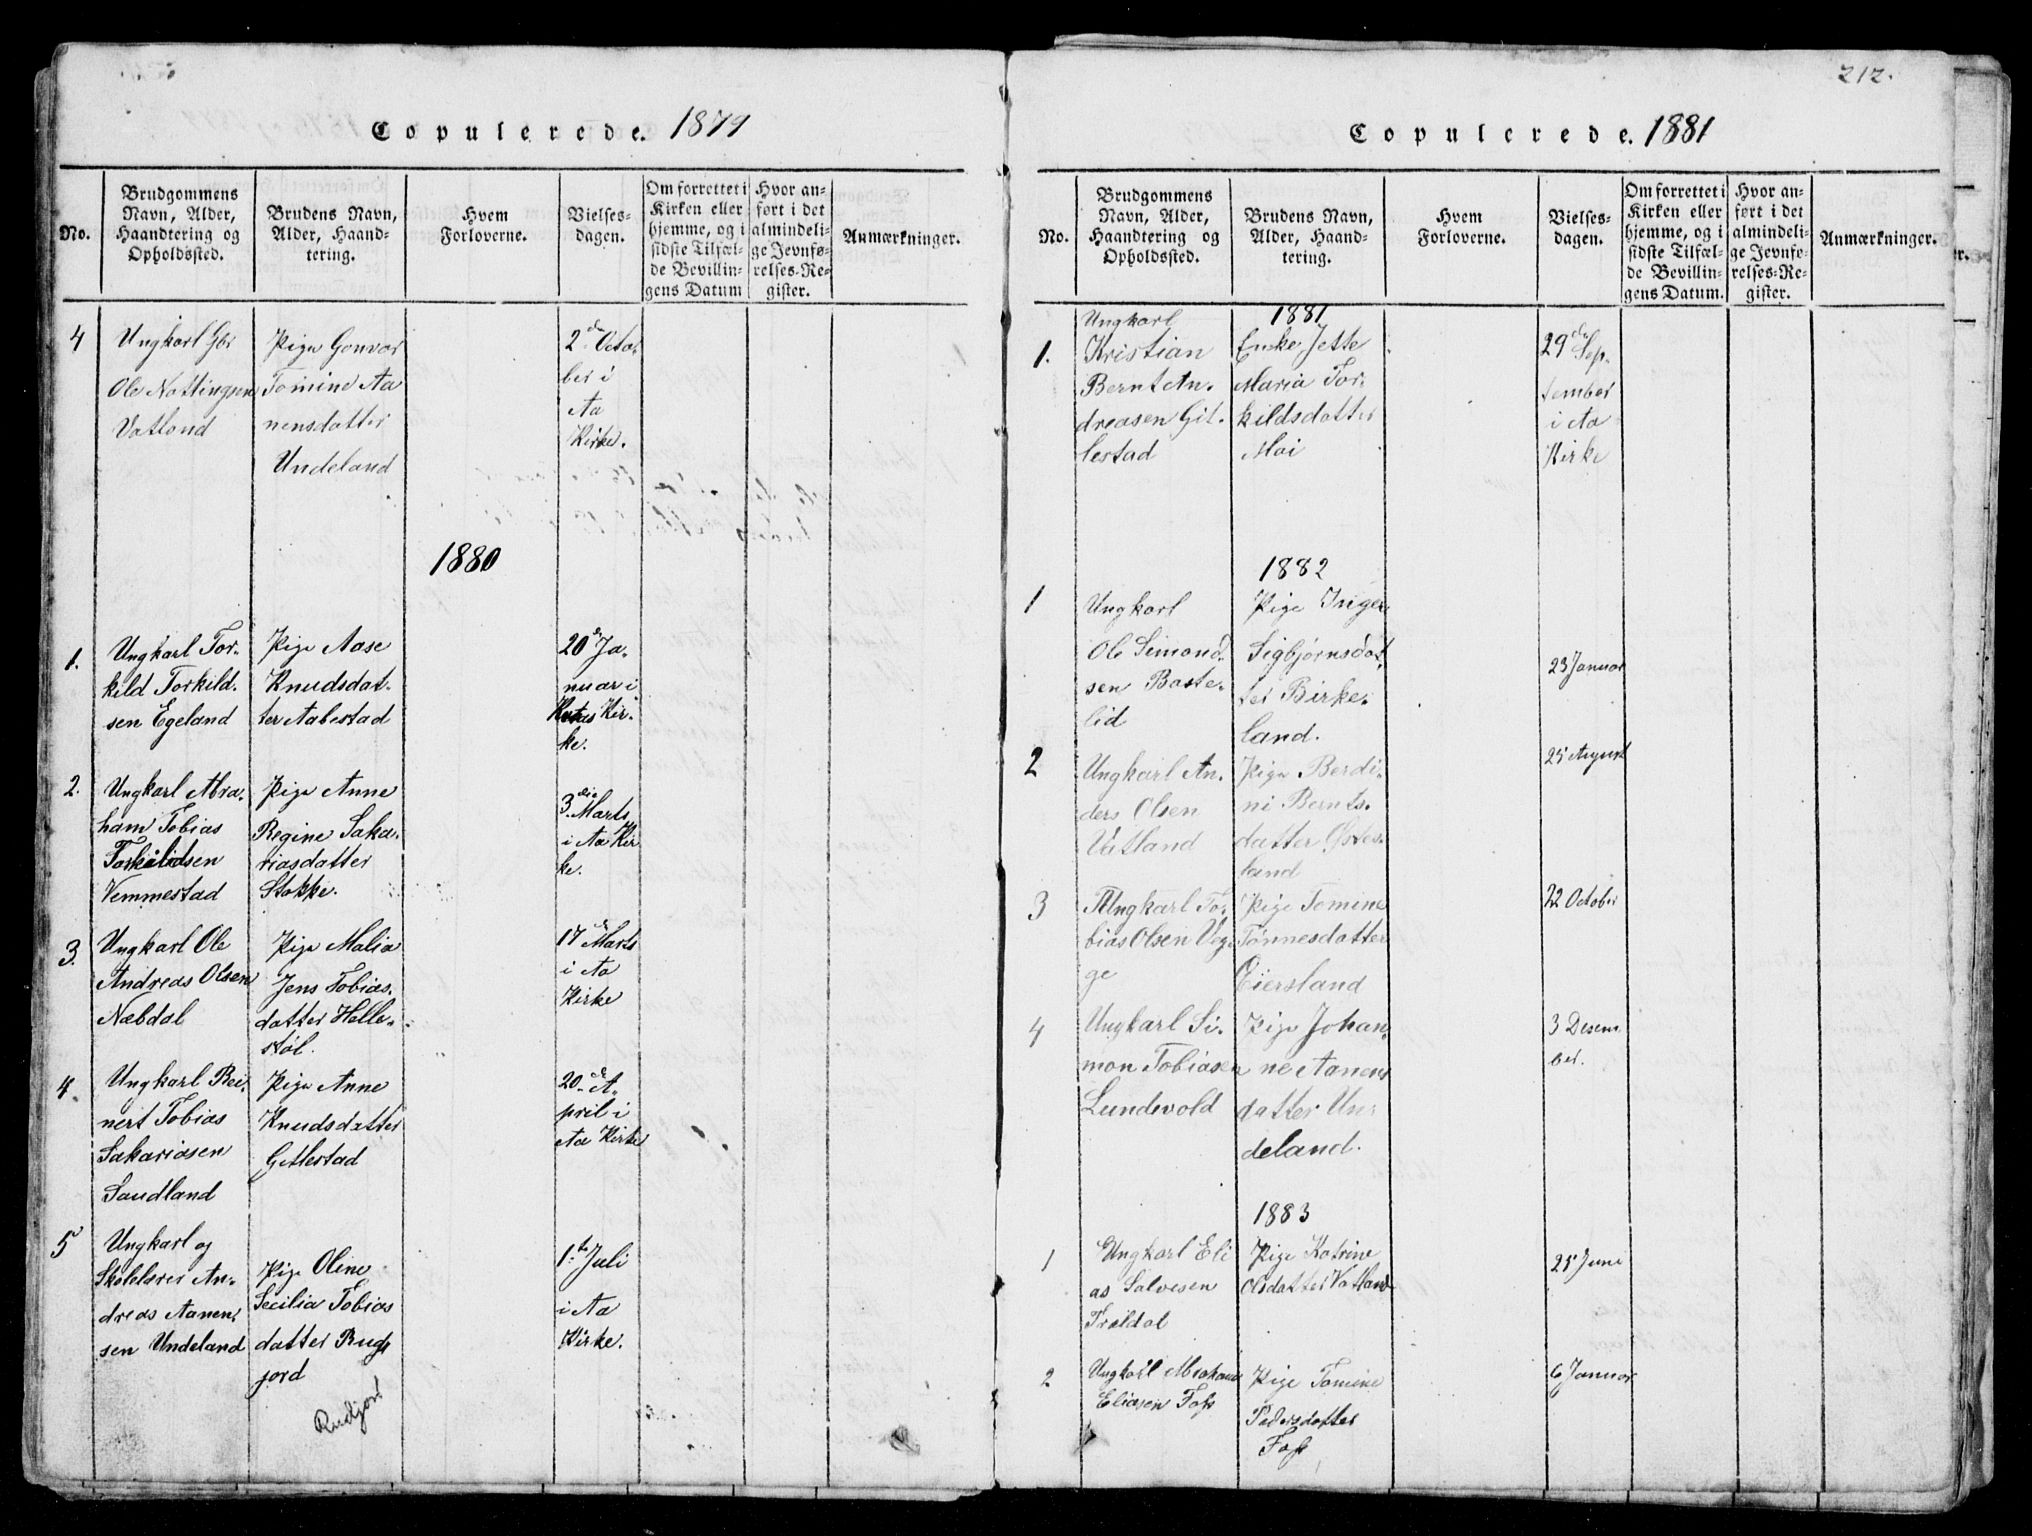 Copulerede. 1879
No.
Brudgommens Navn, Alder, Haandtering og Opholdssted.
Brudens Navn, Alder, Haandtering.
Hvem Forloverne.
Vielsesdagen.
Om forrettet i Kirken eller hjemme, og i sidste Tilfælde Bevillingens Datum
Hvor anført i det almindelige Jevnførelses-Register.
Anmærkninger.
4
Ungkarl Gbr
Ole Nottingsen
Vatland
Pige Gonvor
Tomine Aa
nensdatter
Undeland
2de Octo
ber i
Aa
Kirke.
1880
1.
Ungkarl Tor-
kild Torkild-
sen Egeland
Pige Aase
Knudsdat-
ter Aabestad
20de Ja-
nuar i
Kvaas Kir-
ke.
2.
Ungkarl Abra-
ham Tobias
Torkildsen
Vemmestad
Pige Anne
Regine Saka-
riasdatter
Stokke.
3die Marts
i Aa Kir
ke.
3.
Ungkarl Ole
Andreas Olsen
Næbdal
Pige Malia
Jens Tobias-
datter Helle-
støl.
17de Marts
i Aa
Kirke
4.
Ungkarl Rei-
nert Tobias
Sakariasen
Saudland
Pige Anne
Knudsdatter
Gitlestad
20de A-
pril i
Aa Kirke
5
Ungkarl og
Skolelærer An-
dreas Aanen-
sen Undeland
Pige Oline
Secilia Tobias
datter Rug-
jord
Rudjord
1ste Juli
i Aa
Kirke.
212.
Copulerede. 1881
No.
Brudgommens Navn, Alder, Haandtering og Opholdssted.
Brudens Navn, Alder, Haandtering.
Hvem Forloverne.
Vielsesdagen.
Om forrettet i Kirken eller hjemme, og i sidste Tilfælde Bevillingens Datum.
Hvor anført i det almindelige Jevnførelses-Register.
Anmærkninger.
1881
1.
Ungkarl
Kristian
Bernt An-
dreasen Git-
lestad
Enke Jette
Maria Tor-
kildsdatter
Moi
29de Sep-
tember
i Aa
Kirke
1882
1
Ungkarl
Ole Simond-
sen Baste-
lid
Pige Inger
Sigbjørnsdat
ter Birke-
land.
23 Januar
2
Ungkarl An-
ders Olsen
Vatland
Pige Berdi-
ni Bernts-
datter Østes-
land
25 August
3
Ungkarl To-
bias Olsen Veg-
ge
Pige Tomine
Tønnesdatter
Eiersland
22 October
4
Ungkarl Si-
mon Tobiasen
Lundevold
Pige Johan-
ne Aanens
datter Un-
deland.
3 Desem-
ber.
1883
1
Ungkarl Eli
as Salvesen
Trældal
Pige Katrine
Olsdatter Vatland
25 Juni
2
Ungkarl Abraham
Eliasen Foss
Pige Tomine
Pedersdatter
Foss
6 Januar